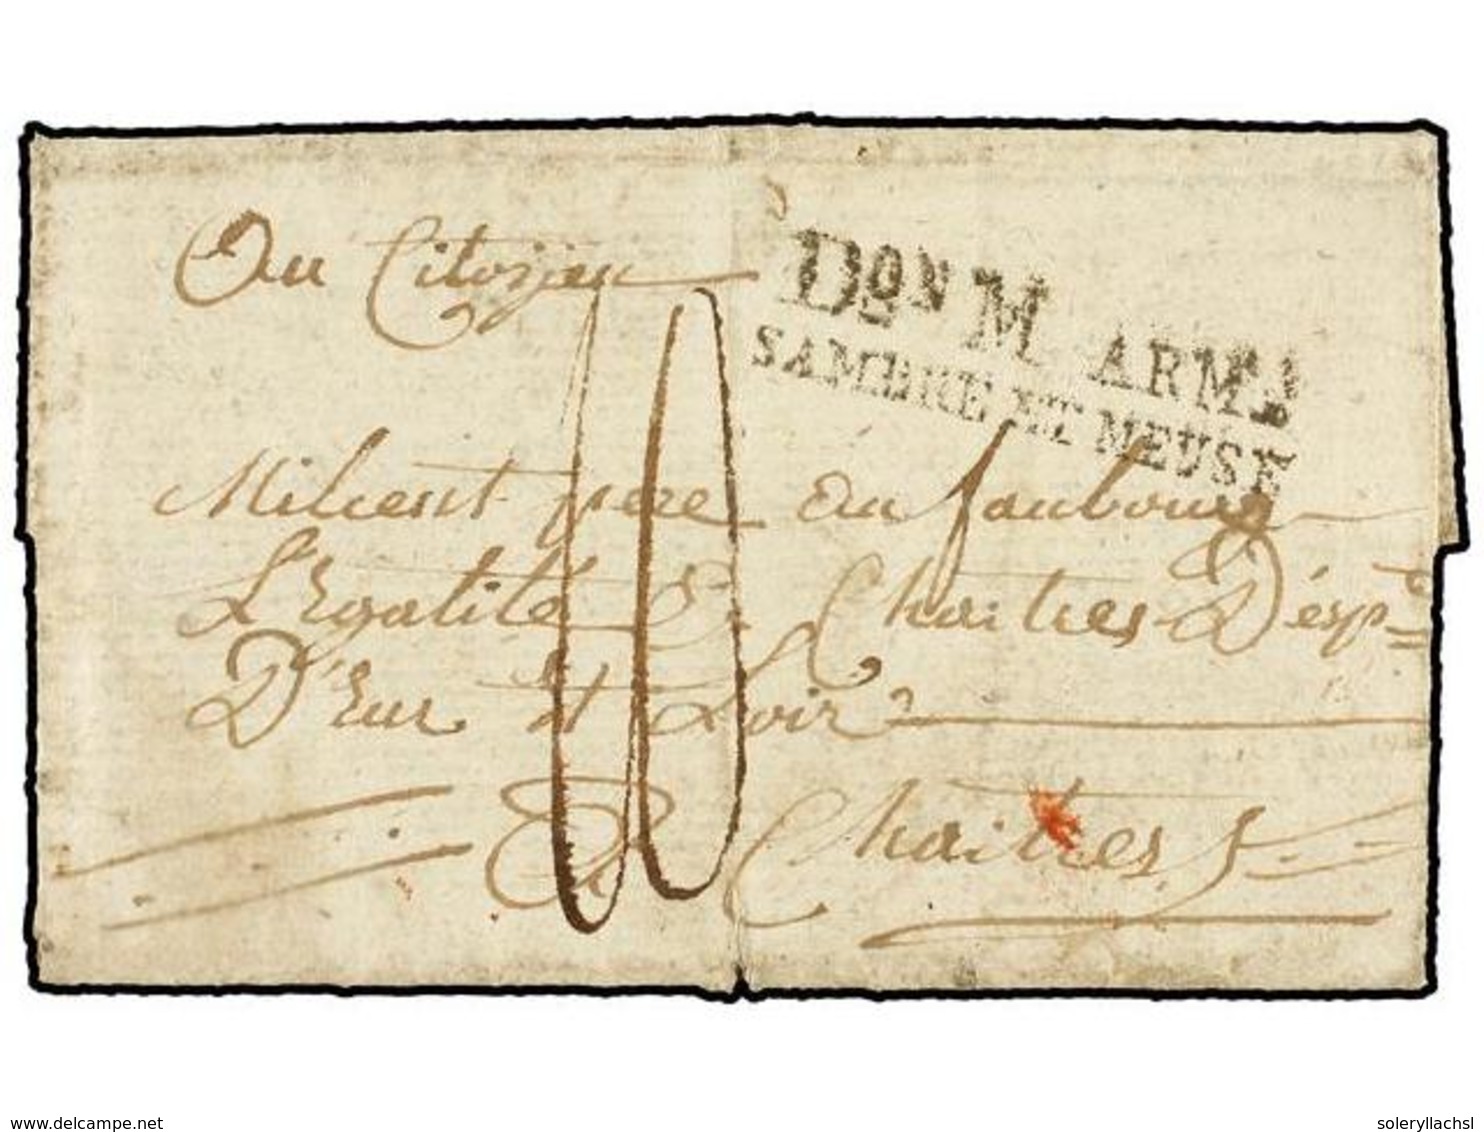 Au Citoyen
Don M ARM
SAMBRE ET MEUSE
10
Milcent pere au faubourg
L'Egalité a Chaitres Désp.te
D'Eur et Loir
A Chaitres
delcampe.net
soleryllachsl